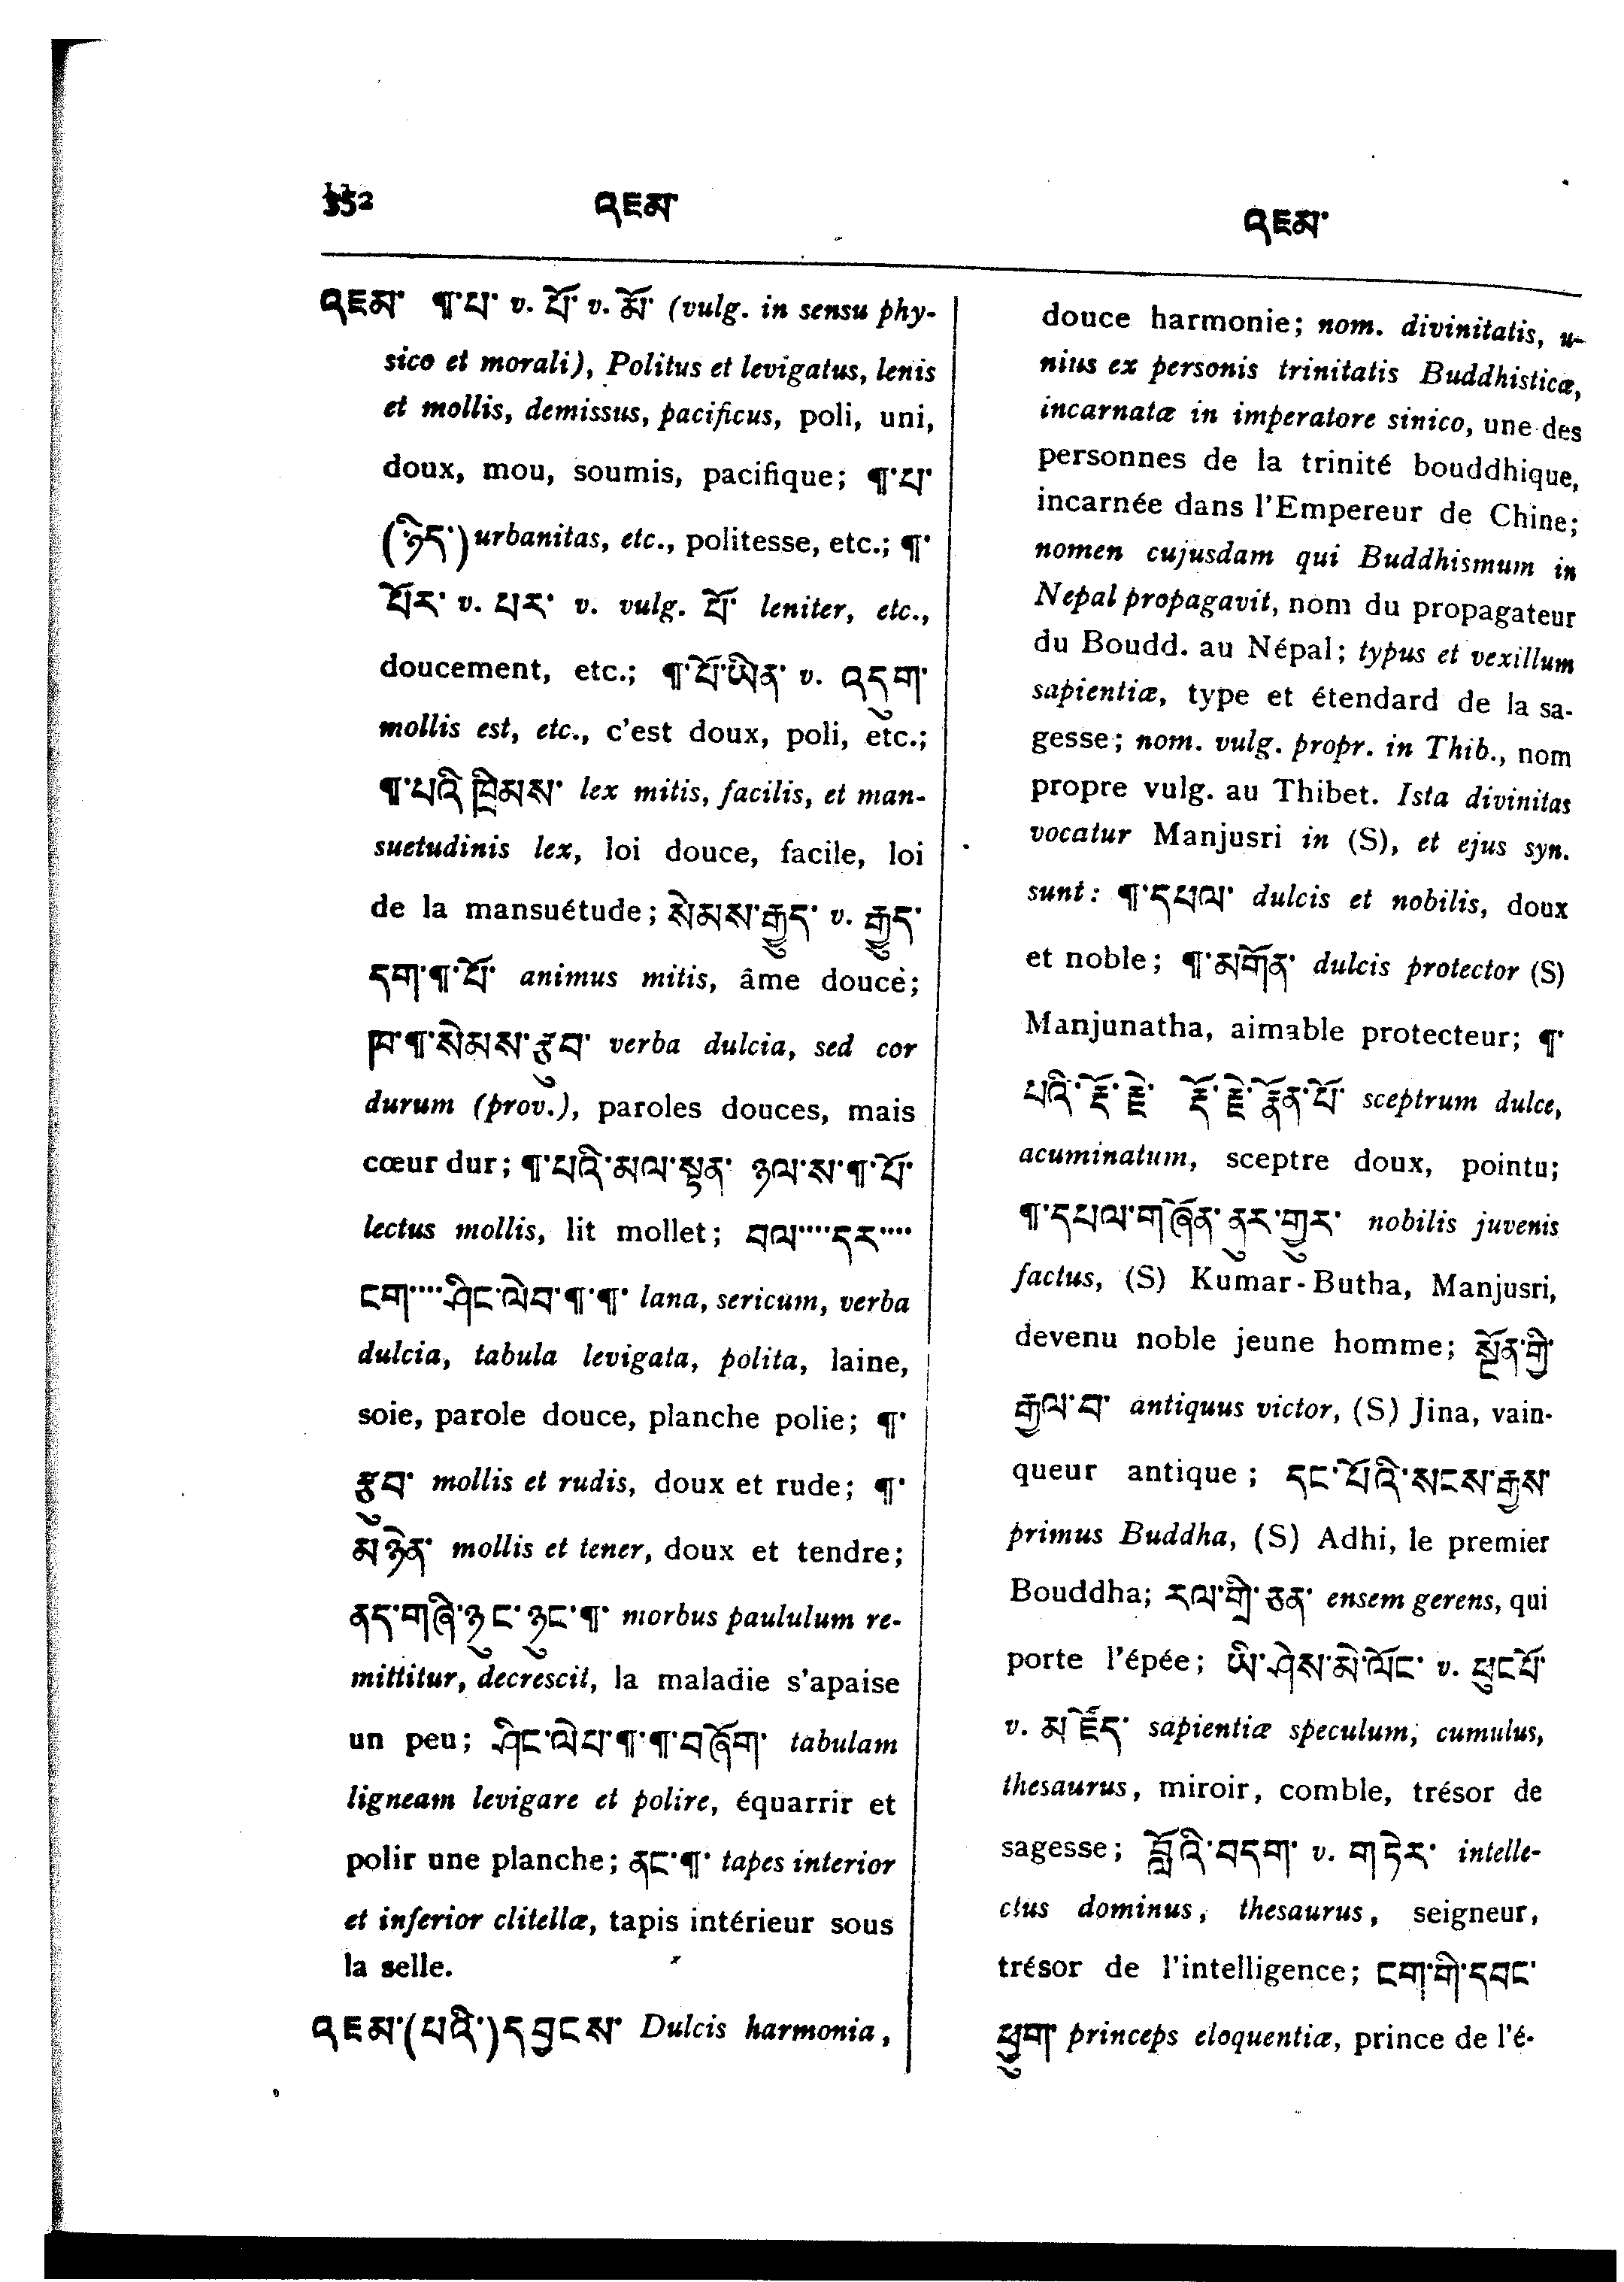 352 འཇམ་ འཇམ་
འཇམ་ ¶་པ་ v. པོ་ v. མོ་ (vulg. in sensu phy-
sico et morali), Politus et levigatus, lenis
et mollis, demissus, pacificus, poli, uni,
doux, mou, soumis, pacifique; ¶་པ་
(ཉིད་) urbanitas, etc., politesse, etc.; ¶་
པོར་ v. པར་ v. vulg. པོ་ leniter, etc.,
doucement, etc.; ¶་པོ་ཡིན་ v. འདུག་
mollis est, etc., c'est doux, poli, etc.;
¶་པའི་ཁྲིམས་ lex mitis, facilis, et man-
suetudinis lex, loi douce, facile, loi
de la mansuétude; སེམས་རྒྱུད་ v. རྒྱུད་
དག་¶་པོ་ animus mitis, âme douce;
ཁ་¶་སེམས་རྩུབ་ verba dulcia, sed cor
durum (prov.), paroles douces, mais
cœur dur; ¶་པའི་མལ་སྟན་ ཉལ་ས་¶་པོ་
lectus mollis, lit mollet; བལ་····དར་····
ངག་····ཤིང་ལེབ་¶་¶་ lana, sericum, verba
dulcia, tabula levigata, polita, laine,
soie, parole douce, planche polie; ¶་
རྩུབ་ mollis et rudis, doux et rude; ¶་
མཉེན་ mollis et tener, doux et tendre;
ནད་གཞི་ཉུང་ཉུང་¶་ morbus paululum re-
mittitur, decrescit, la maladie s'apaise
un peu; ཤིང་ལེབ་¶་¶་བཞོག་ tabulam
ligneam levigare et polire, équarrir et
polir une planche; ནང་¶་ tapes interior
et inferior clitellæ, tapis intérieur sous
la selle.
འཇམ་(པའི་)དབྱངས་ Dulcis harmonia,
douce harmonie; nom. divinitatis, u-
nius ex personis trinitatis Buddhisticæ,
incarnatæ in imperatore sinico, une des
personnes de la trinité bouddhique,
incarnée dans l'Empereur de Chine;
nomen cujusdam qui Buddhismum in
Nepal propagavit, nom du propagateur
du Boudd. au Népal; typus et vexillum
sapientiæ, type et étendard de la sa-
gesse; nom. vulg. propr. in Thib., nom
propre vulg. au Thibet. Ista divinitas
vocatur Manjusri in (S), et ejus syn.
sunt: ¶་དཔལ་ dulcis et nobilis, doux
et noble; ¶་མགོན་ dulcis protector (S)
Manjunatha, aimable protecteur; ¶་
པའི་རྡོ་རྗེ་ རྡོ་རྗེ་རྣོན་པོ་ sceptrum dulce,
acuminatum, sceptre doux, pointu;
¶་དཔལ་གཞོན་ནུར་གྱུར་ nobilis juvenis
factus, (S) Kumar-Butha, Manjusri,
devenu noble jeune homme; སྔོན་གྱི་
རྒྱལ་བ་ antiquus victor, (S) Jina, vain-
queur antique; དང་པོའི་སངས་རྒྱས་
primus Buddha, (S) Adhi, le premier
Bouddha; རལ་གྲི་ཅན་ ensem gerens, qui
porte l'épée; ཡི་ཤེས་མེ་ལོང་ v. ཕུང་པོ་
v. མཛོད་ sapientiæ speculum, cumulus,
thesaurus, miroir, comble, trésor de
sagesse; བློའི་བདག་ v. གཏེར་ intelle-
ctus dominus, thesaurus, seigneur,
trésor de l'intelligence; ངག་གི་དབང་
ཕྱུག་ princeps eloquentiæ, prince de l'é-